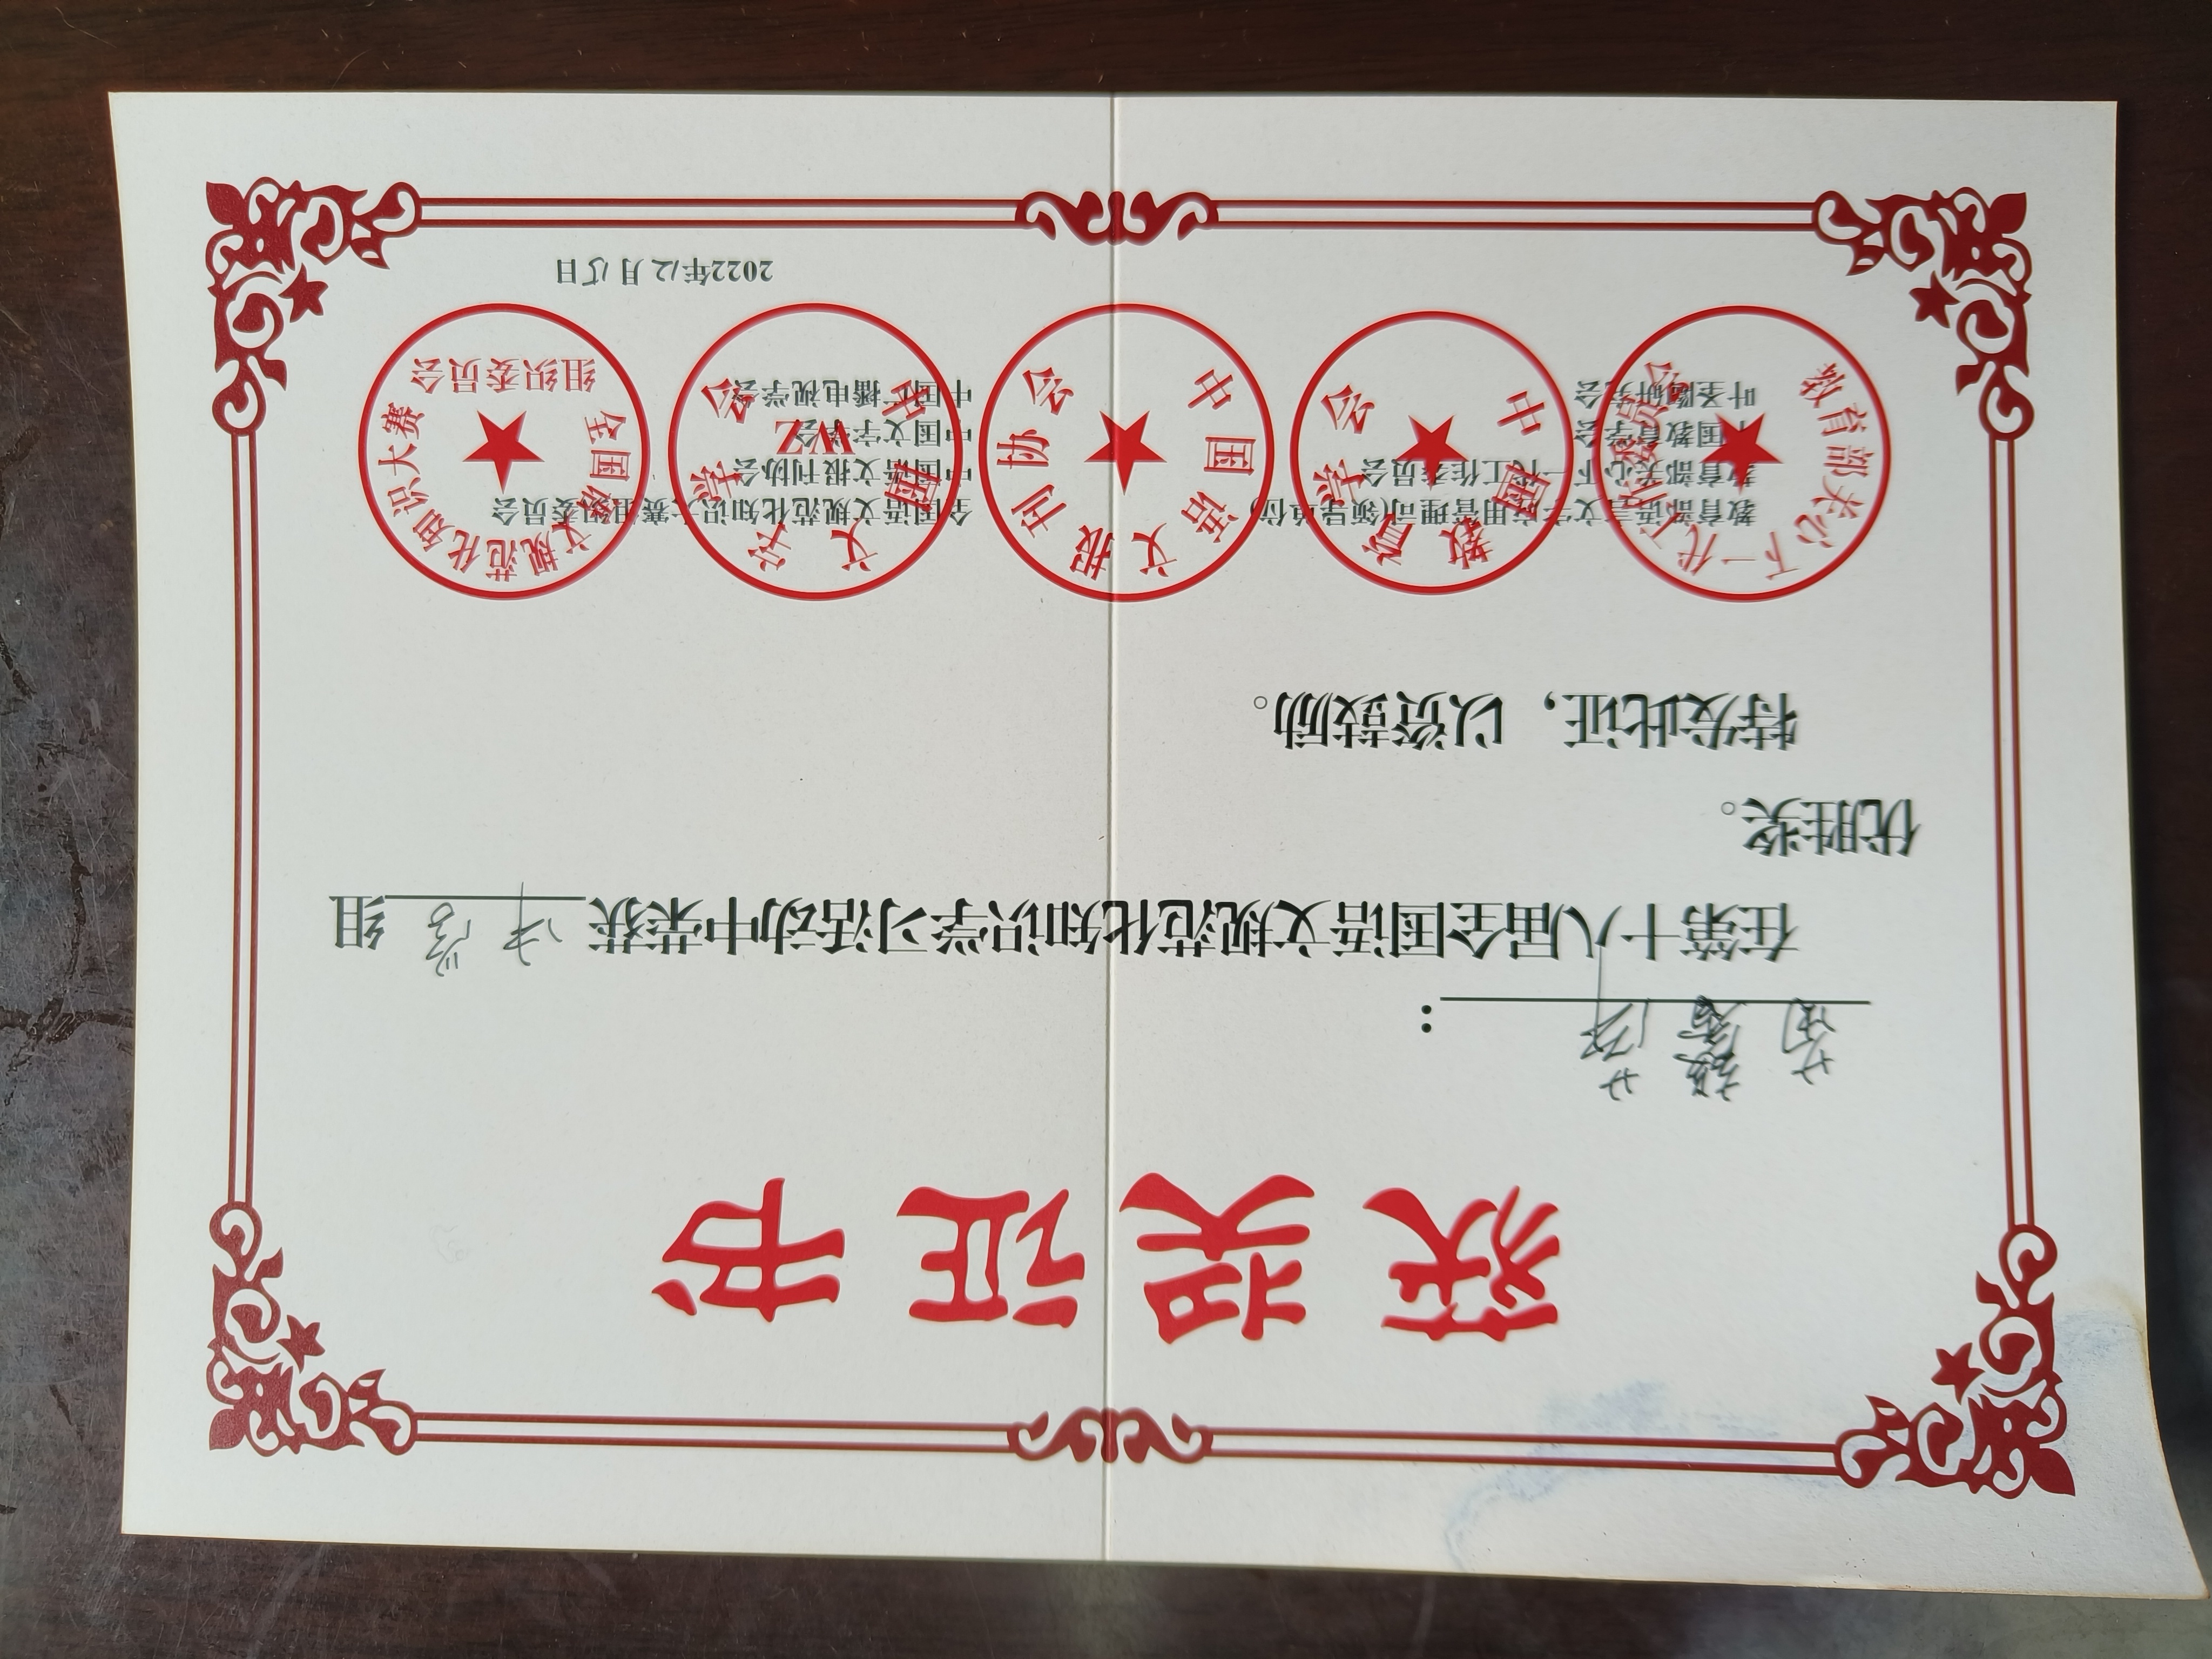 获奖证书
：
在第十八届全国语文规范化知识学习活动中荣获 组
优胜奖。
特发此证，以资鼓励。
教育部语言文字应用管理司(领导单位)
教育部关心下一代工作委员会
中国教育学会
叶圣陶研究会
全国语文规范化知识大赛组织委员会
中国语文报刊协会
中国文字学会
中国广播电视学会
教育部关心下一代工作委员会
中国教育学会
中国语文报刊协会
中国文字学会
WZ
全国语文规范化知识大赛
组织委员会
2022年12月15日